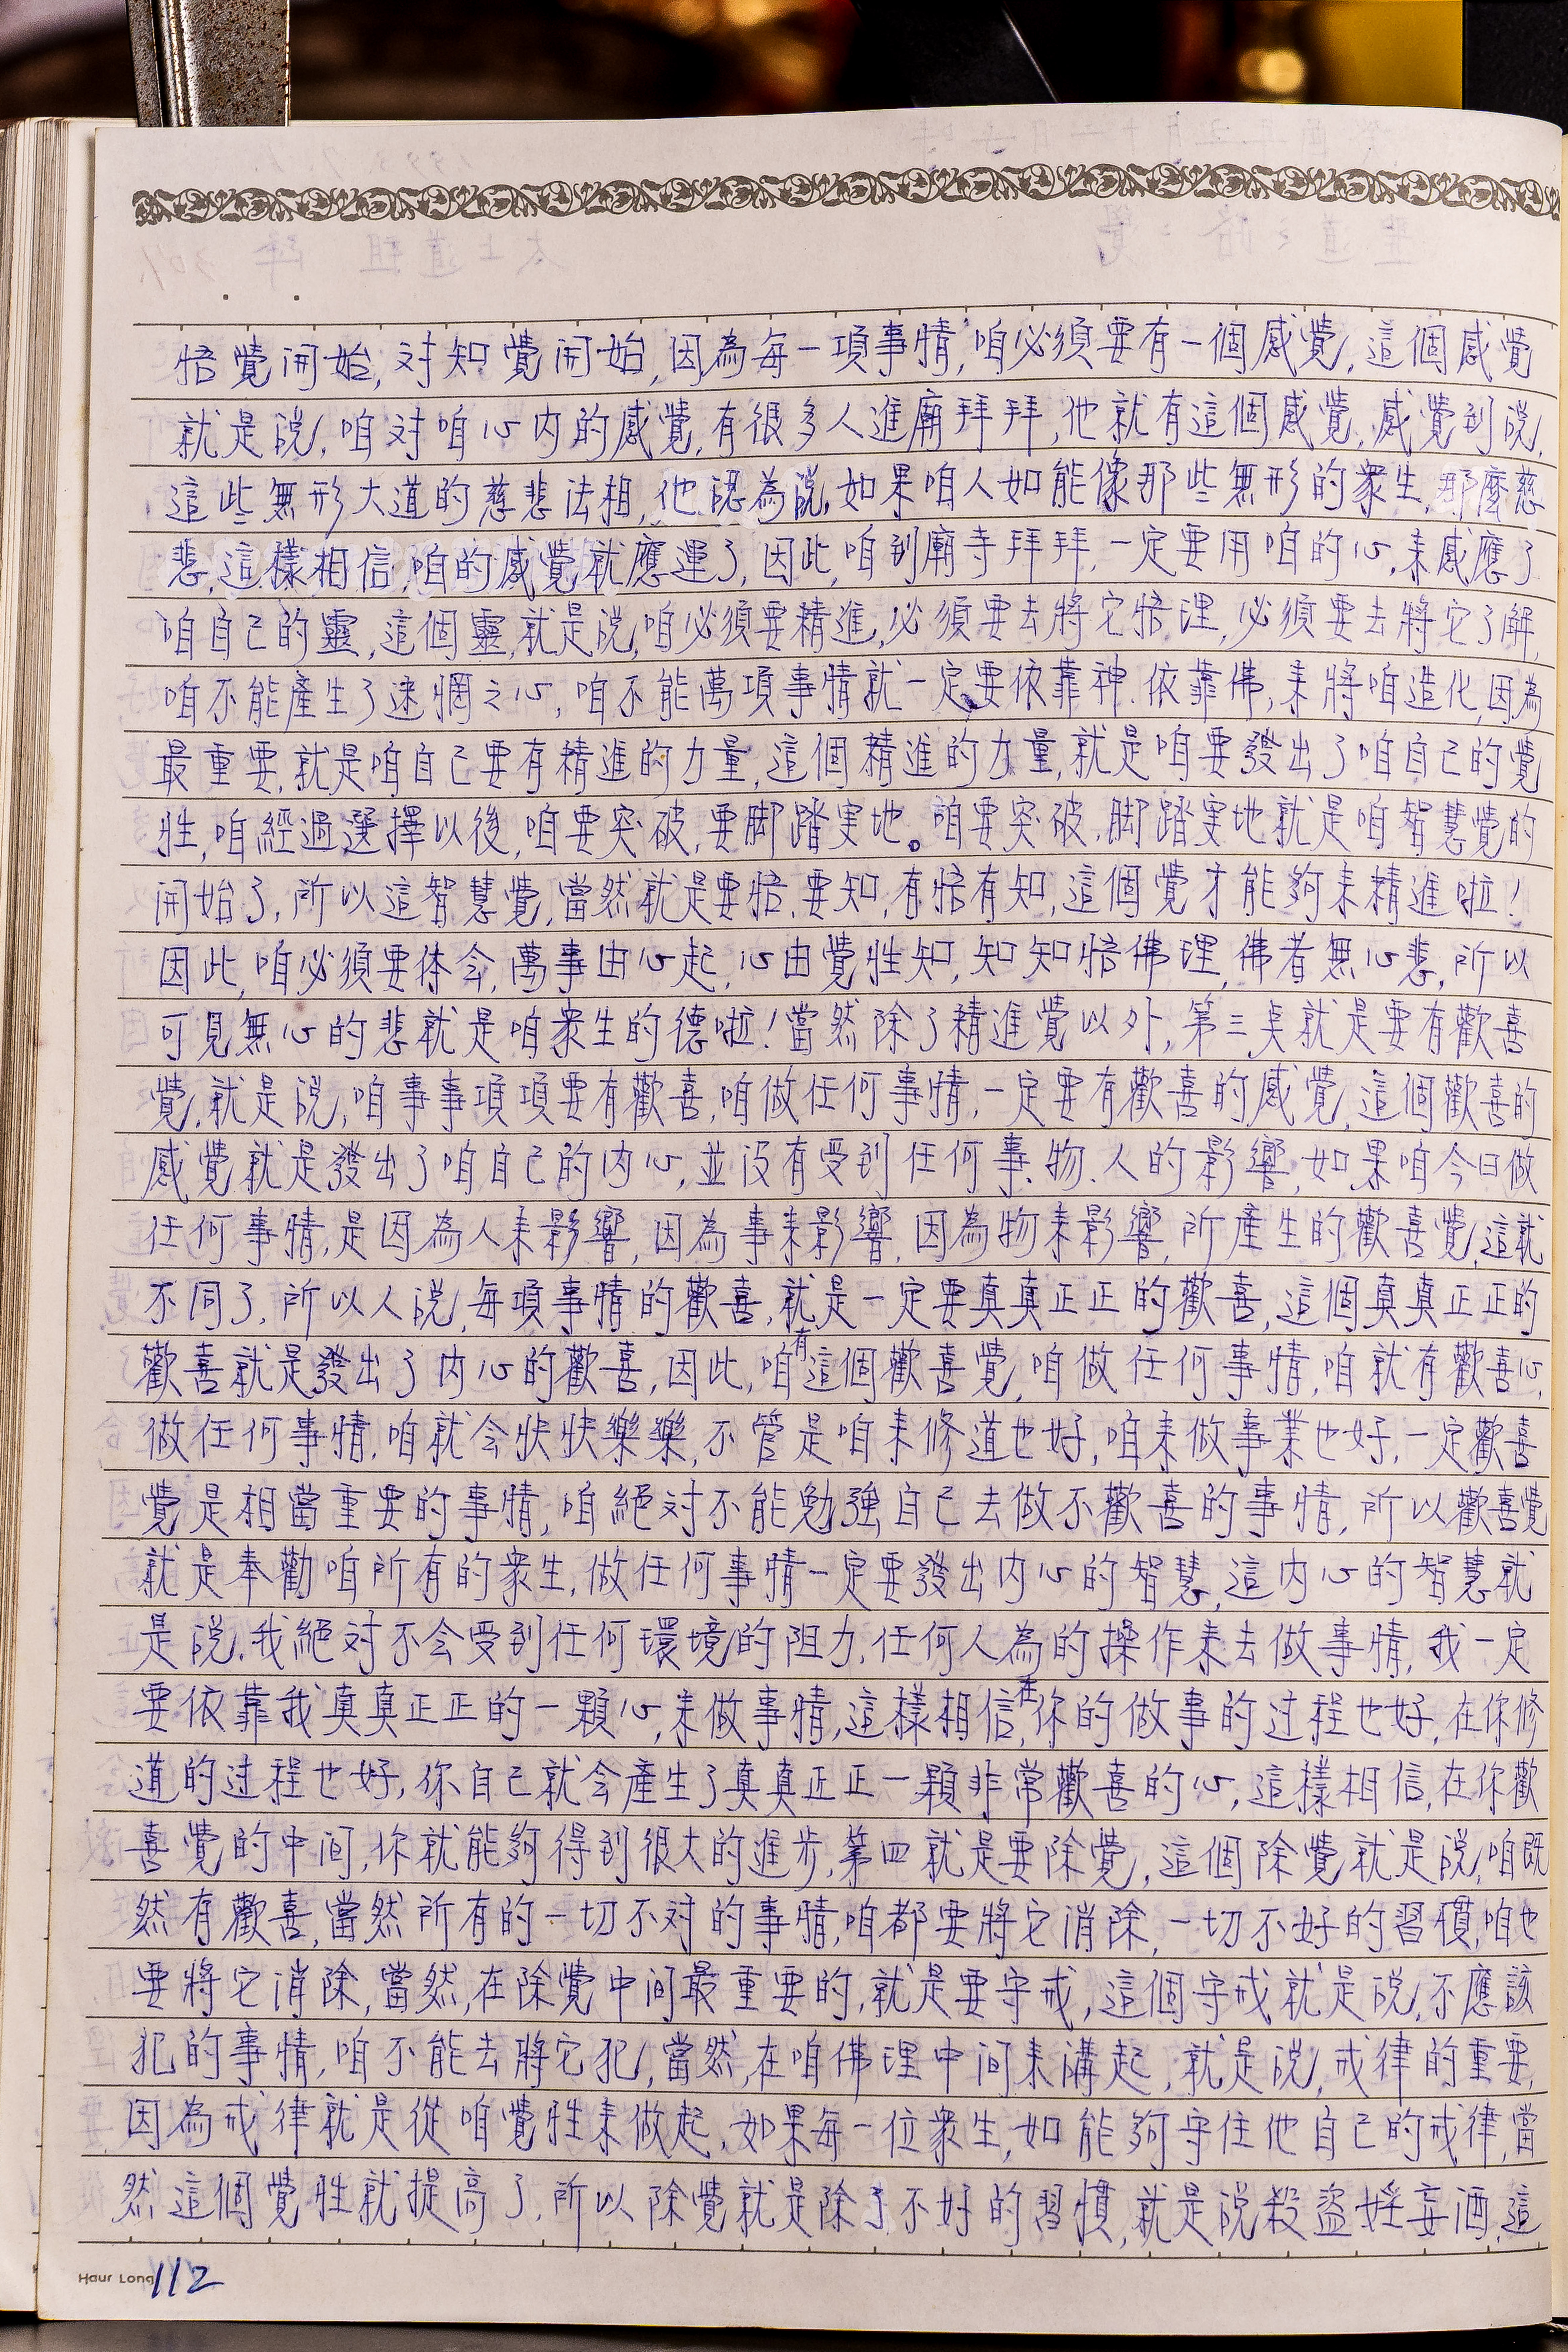 悟覺開始,对知覺開始,因為每一項事情,咱必須要有一個感覺,這個感覺
就是說,咱对咱心内的感覺,有很多人進廟拜拜,他就有這個感覺,感覺到說,
這些無形大道的慈悲法相,他認為說,如果咱人如能像那些無形的衆生,那麼慈
悲,這樣相信,咱的感覺就應運了,因此,咱到廟寺拜拜,一定要用咱的心,来感應了
咱自己的靈,這個靈,就是說,咱必須要精進,必須要去將它悟理,必須要去將它了解,
咱不能產生了迷惘之心,咱不能萬項事情就一定要依靠神.依靠佛,来將咱造化,因為
最重要,就是咱自己要有精進的力量,這個精進的力量,就是咱要發出了咱自己的覺
性,咱經過選擇以後,咱要突破,要脚踏実地。咱要突破,脚踏実地就是咱智慧覺的
開始了,所以這智慧覺,當然就是要悟.要知,有悟有知,這個覺才能夠来精進啦!
因此,咱必須要体会,萬事由心起,心由覺性知,知知悟佛理,佛者無心悲,所以
可見無心的悲就是咱衆生的德啦!當然除了精進覺以外,第三点就是要有歡喜
覺,就是說,咱事事項項要有歡喜,咱做任何事情,一定要有歡喜的感覺,這個歡喜的
感覺就是發出了咱自己的内心,並沒有受到任何事.物.人的影響,如果咱今日做
任何事情,是因為人来影響,因為事来影響,因為物来影響,所產生的歡喜覺,這就
不同了,所以人說,每項事情的歡喜,就是一定要真真正正的歡喜,這個真真正正的
歡喜就是發出了内心的歡喜,因此,咱有這個歡喜覺,咱做任何事情,咱就有歡喜心,
做任何事情,咱就会快快樂樂,不管是咱来修道也好,咱来做事業也好,一定歡喜
覺是相當重要的事情,咱絕对不能勉強自己去做不歡喜的事情,所以歡喜覺
就是奉勸咱所有的衆生,做任何事情一定要發出内心的智慧,這内心的智慧就
是說,我絕对不会受到任何環境的阻力,任何人為的操作来去做事情,我一定
要依靠我真真正正的一顆心,来做事情,這樣相信,在你的做事的过程也好,在你修
道的过程也好,你自己就会產生了真真正正一顆非常歡喜的心,這樣相信,在你歡
喜覺的中间,你就能夠得到很大的進步,第四就是要除覺,這個除覺就是說,咱既
然有歡喜,當然所有的一切不对的事情,咱都要將它消除,一切不好的習慣,咱也
要將它消除,當然,在除覺中间最重要的,就是要守戒,這個守戒就是說,不應該
犯的事情,咱不能去將它犯,當然,在咱佛理中间来講起,就是說,戒律的重要,
因為戒律就是從咱覺性来做起,如果每一位衆生,如能夠守住他自己的戒律,當
然這個覺性就提高了,所以除覺就是除了不好的習慣,就是說殺盜婬妄酒,這
Haur Long 112